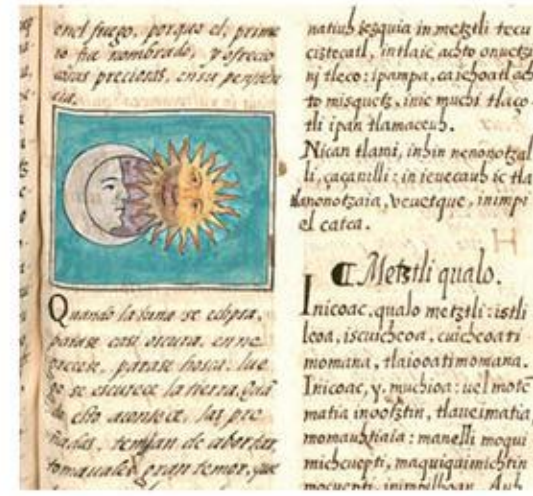 en el fuego, porque el, prime
ro fue nombrado, y ofrecio
cosas preciosas, en su peniten
cia.
Quando la luna se eclipsa,
parase casi oscura, enne
grecese, parase hosca, lue
go se escurece la tierra. Quã
do esto acontece, las pre
ñadas, temjan de abortar,
tomauales gran temor, que
natiuh ꜩezquia in metztli tecu
ciztecatl, intlaic achto onuetzi
nj tleco: ipampa, ca ichoatl ach
to misquetz, inic muchi tlaço
tli ipan tlamaceuh.
Nican tlami, inhin nenonotzal
li, çaçanilli: in ieuecauh ic tla
tlanonotzaia, veuetque, inimpi
el catca.
¶ Metztli qualo.
Inicoac, qualo metztli: istli
leoa, iscuicheoa, cuicheoati
momana, tlaiooatimomana.
Inicoac, y, muchioa: vel motẽ
matia inootztin, tlaueimatia,
momauhtiaia: manelli moqui
michcuepti, maquiquimichtin
mocuepti, inimpilhoan. Auh